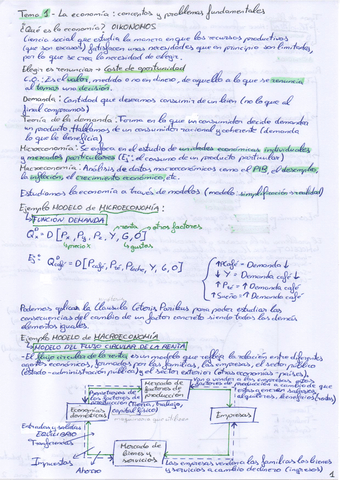 Tema 1 - La economía: conceptos y problemas fundamentales
¿Qué es la economía? OIKONOMOS
Ciencia social que estudia la manera en que los recursos productivos
(que son escasos) satisfacen unas necesidades que en principio son ilimitadas,
por lo que se crea la necesidad de elegir.
Elegir es renunciar → Coste de oportunidad
C.O.: Es el valor, medido o no en dinero, de aquello a lo que se renuncia
al tomar una decisión.
Demanda: Cantidad que deseamos consumir de un bien (no lo que al
final compramos)
Teoría de la demanda: Forma en la que un consumidor decide demandar
un producto. Hablamos de un consumidor racional y coherente (demanda
lo que le beneficia)
Microeconomía: Se enfoca en el estudio de unidades económicas individuales
y mercados particulares (Ej: el consumo de un producto particular)
Macroeconomía: Análisis de datos macroeconómicos como el PIB, el desempleo,
la inflación, el crecimiento económico, etc.
Estudiamos la economía a través de modelos (modelo: simplificación realidad)
Ejemplo MODELO de MICROECONOMÍA:
FUNCIÓN DEMANDA
renta otros factores
Q = D [P, P, P, Y, G, O]
precio gustos
Ej: Q café = D [P café, P té, P leche, Y, G, O]
↑P café = ↓Demanda
↓ Y = ↓ Demanda café
↑ P té = ↑ Demanda café
↑ Sueño = ↑ Demanda café
Podemos aplicar la Cláusula Céteris Páribus para poder estudiar las
consecuencias del cambio de un factor concreto siendo todos los demás
elementos iguales.
Ejemplo MODELO de MACROECONOMÍA
MODELO DEL FLUJO CIRCULAR DE LA RENTA
- El flujo circular de la renta es un modelo que refleja la relación entre diferentes
agentes económicos, formados por: las familias, las empresas, el sector público
(estado - administración pública), el sector exterior (otras economías - países).
Mercado de
factores de
producción
Economías
domésticas
Empresas
Entradas y salidas
EQUILIBRIO
Transferencias
Impuestos
Ahorro
Mercado de
bienes y
servicios
Las empresas venden a las familias los bienes
y servicios a cambio de dinero (ingresos)
1